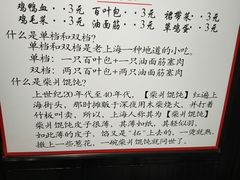 鸡鸭血··3元 百叶包··3元 裙带菜··3元
鸡毛菜··3元 油面筋··3元 草鸡蛋··3元
什么是单档和双档?
单档和双档是老上海一种地道的小吃。
单档:一只百叶包+一只油面筋塞肉
双档:两只百叶包+两只油面筋塞肉
什么是柴爿馄饨?
上世纪20年代至40年代,【柴爿馄饨】红遍上
海街头,那时摊贩于深夜用木柴烧火,并打着
竹板叫卖,所以,上海人称其为【柴爿馄饨】
柴爿馄饨皮子很薄,其薄如纸,其轻似羽,
如此薄的皮子,馅又是"拓"上去的,一烫就熟,
撒上一些葱花,一碗柴爿馄饨就问世了。